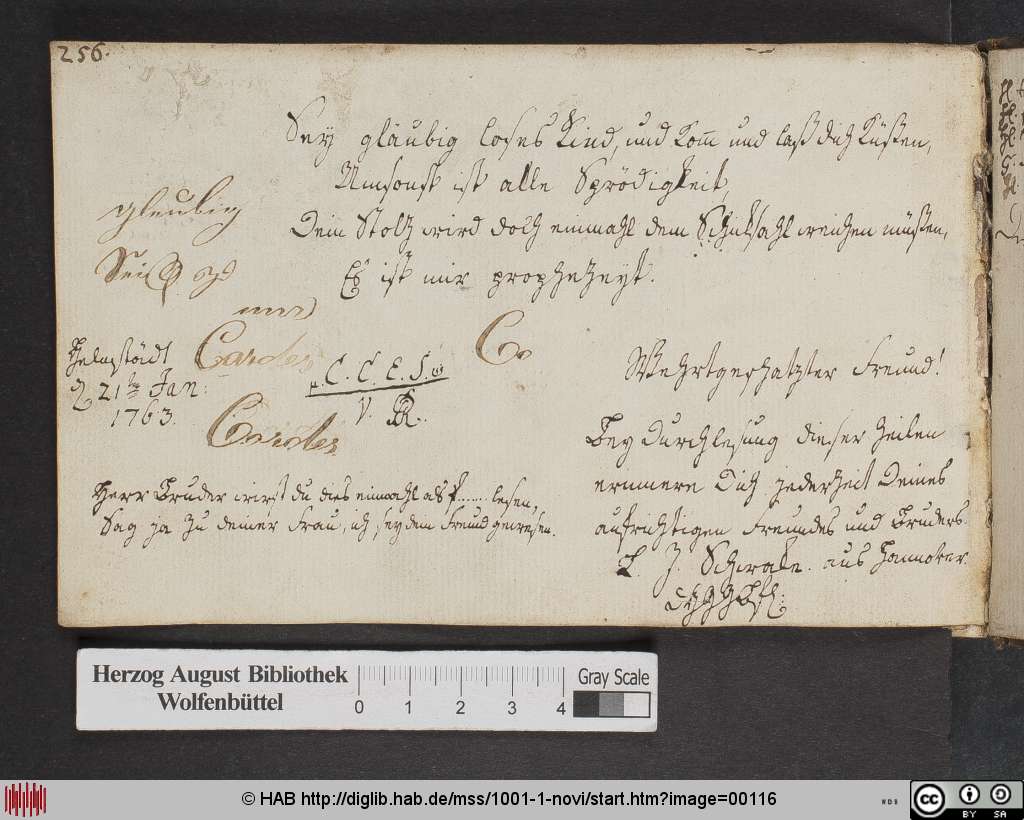 256.
Sey gläubig loses Kind, und kom̅ und laß dich küßen,
Umsonst ist alle Sprödigkeit,
Dein Stoltz wird doch einmahl dem Schicksahl weichen müßen,
Es ist mir prophezeyt.
gleubig
Cardes
Co
Helmstädt
d. 21ten Jan:
1763.
C. C. E. S.
V.
Cardes
Wehrtgeschatzter Freund!
Bey Durchlesung dieser Zeilen
erinnere Dich jederzeit Deines
aufrichtigen Freundes und Bruders
J. Schwabe. aus Hannover.
Herr Bruder wirst du dies einmahl als ........ lesen,
Sag ja zu deiner Frau, ich sey dein Freund gewesen.
Herzog August Bibliothek
Wolfenbüttel
0 1 2 3 4
Gray Scale
© HAB http://diglib.hab.de/mss/1001-1-novi/start.htm?image=00116
WDB
cc BY SA